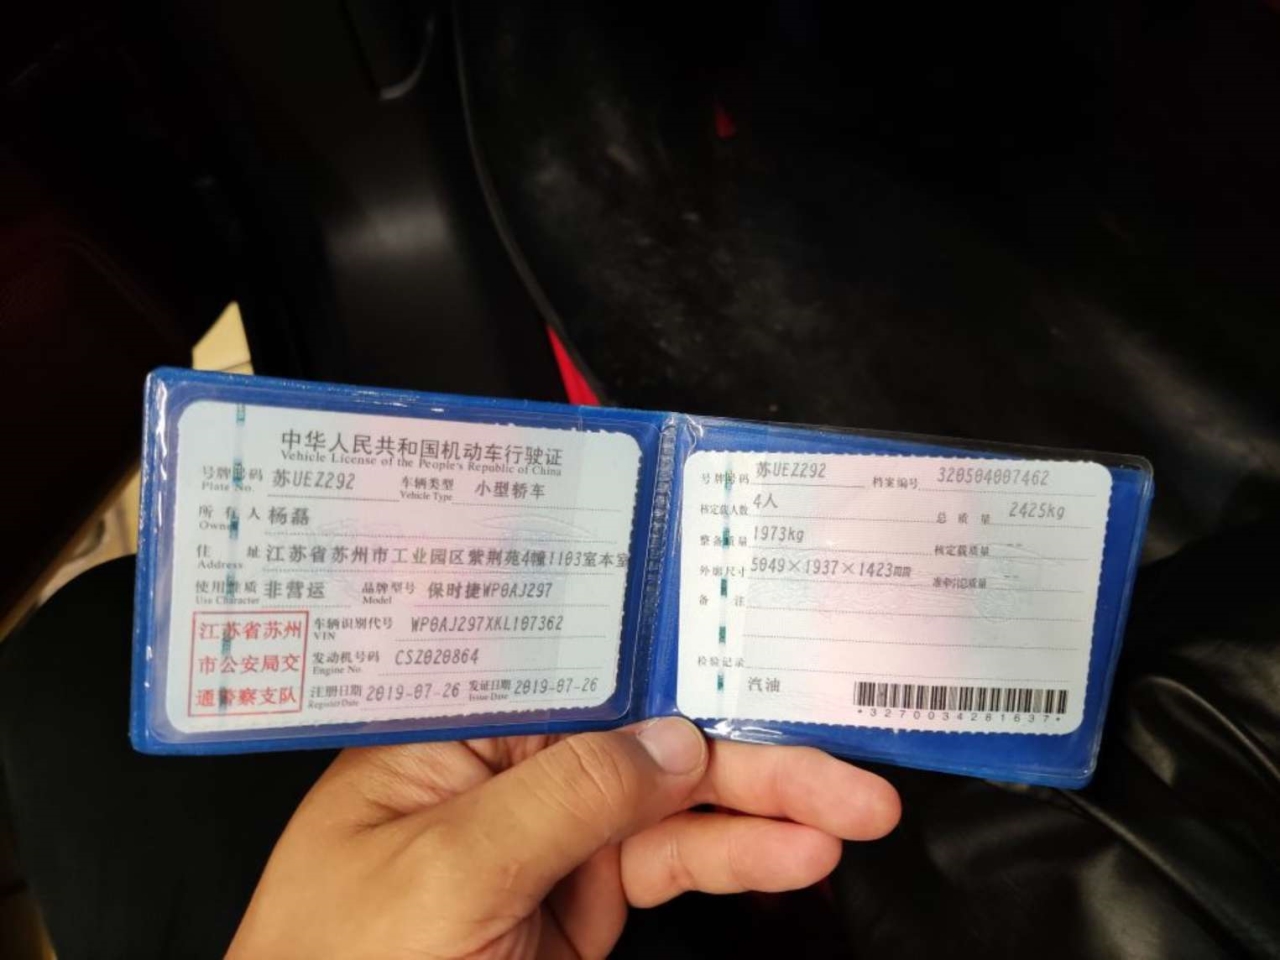 中华人民共和国机动车行驶证
Vehicle License of the People's Republic of China
号牌号码 苏UEZ292 车辆类型 小型轿车
Plate No. Vehicle Type
所有人 杨磊
Owner
住址 江苏省苏州市工业园区紫荆苑4幢1103室本室
Address
使用性质 非营运 品牌型号 保时捷WP0AJ297
Use Character Model
江苏省苏州
市公安局交
通警察支队
车辆识别代号 WP0AJ297XKL107362
VIN
发动机号码 CSZ020864
Engine No.
注册日期 2019-07-26 发证日期 2019-07-26
Register Date Issue Date
号牌号码 苏UEZ292 档案编号 320504007462
核定载人数 4人 总质量 2425kg
整备质量 1973kg 核定载质量 --
外廓尺寸 5049×1937×1423mm 准牵引总质量 --
备注
检验记录
汽油
*3270034281637*